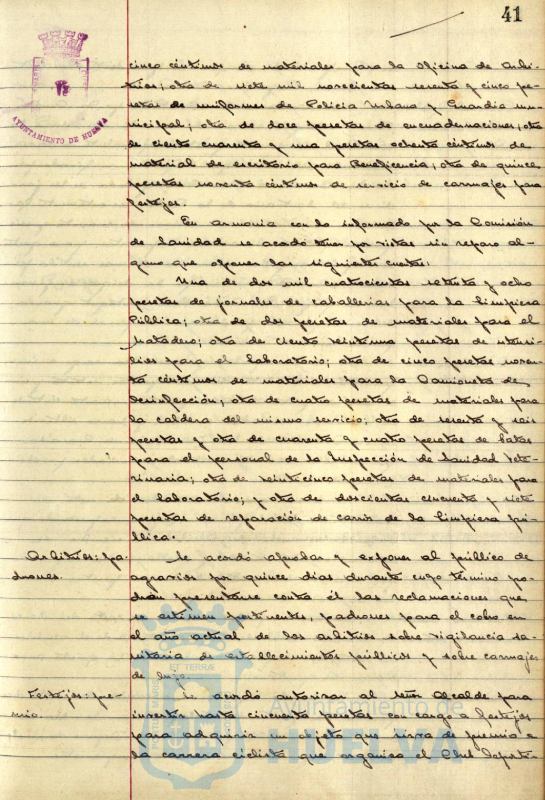 41
AYUNTAMIENTO DE HUELVA
cinco céntimos de materiales para la Oficina de Arbi-
trios; otra de siete mil novecientas sesenta y cinco pe-
setas de uniformes de Policía Urbana y Guardia mu-
nicipal; otra de doce pesetas de encuadernaciones; otra
de ciento cuarenta y una pesetas ochenta céntimos de
material de escritorio para Beneficencia; otra de quince
pesetas noventa céntimos de servicio de carruajes para
festejos.
En armonía con lo informado por la Comisión
de Sanidad se acordó tener por vistas sin reparo al-
guno que oponer las siguientes cuentas:
Una de dos mil cuatrocientas setenta y ocho
pesetas de jornales de caballerías para la Limpieza
Pública; otra de dos pesetas de materiales para el
Matadero; otra de ciento veintiuna pesetas de utensi-
lios para el laboratorio; otra de cinco pesetas noven-
ta céntimos de materiales para la Camioneta de
Desinfección; otra de cuatro pesetas de materiales para
la caldera del mismo servicio; otra de sesenta y seis
pesetas y otra de cuarenta y cuatro pesetas de batas
para el personal de la Inspección de Sanidad Vete-
rinaria; otra de veinticinco pesetas de materiales para
el laboratorio; y otra de doscientas cincuenta y siete
pesetas de reparación de carros de la Limpieza pú-
blica.
Arbitrios: pa-
drones.
Se acordó aprobar y exponer al público de
agravios por quince días durante cuyo término po-
drán presentarse contra él las reclamaciones que
se estimen pertinentes, padrones para el cobro en
el año actual de los arbitrios sobre vigilancia sa-
nitaria de establecimientos públicos y sobre carruajes
de lujo.
Festejos: pre-
mio.
Se acordó autorizar al señor Alcalde para
invertir hasta cincuenta pesetas con cargo a festejos
para adquirir un objeto que sirva de premio a
la carrera ciclista que organiza el Club Deporti-
ET TERRÆ
Ayuntamiento de
HUELVA